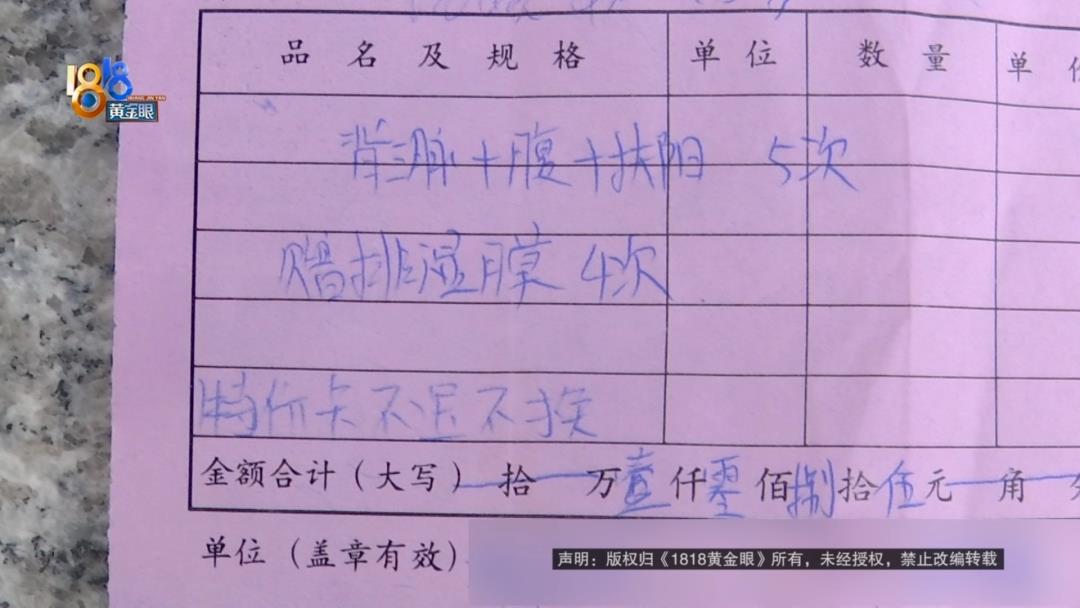 1818
黄金眼
品名及规格 单位 数量 单
背部脉+腹+扶阳 5次
赠排湿膜 4次
特价卡不退不换
金额合计(大写) 拾 万壹仟零佰捌拾伍元 角
单位(盖章有效)
声明:版权归《1818黄金眼》所有,未经授权,禁止改编转载